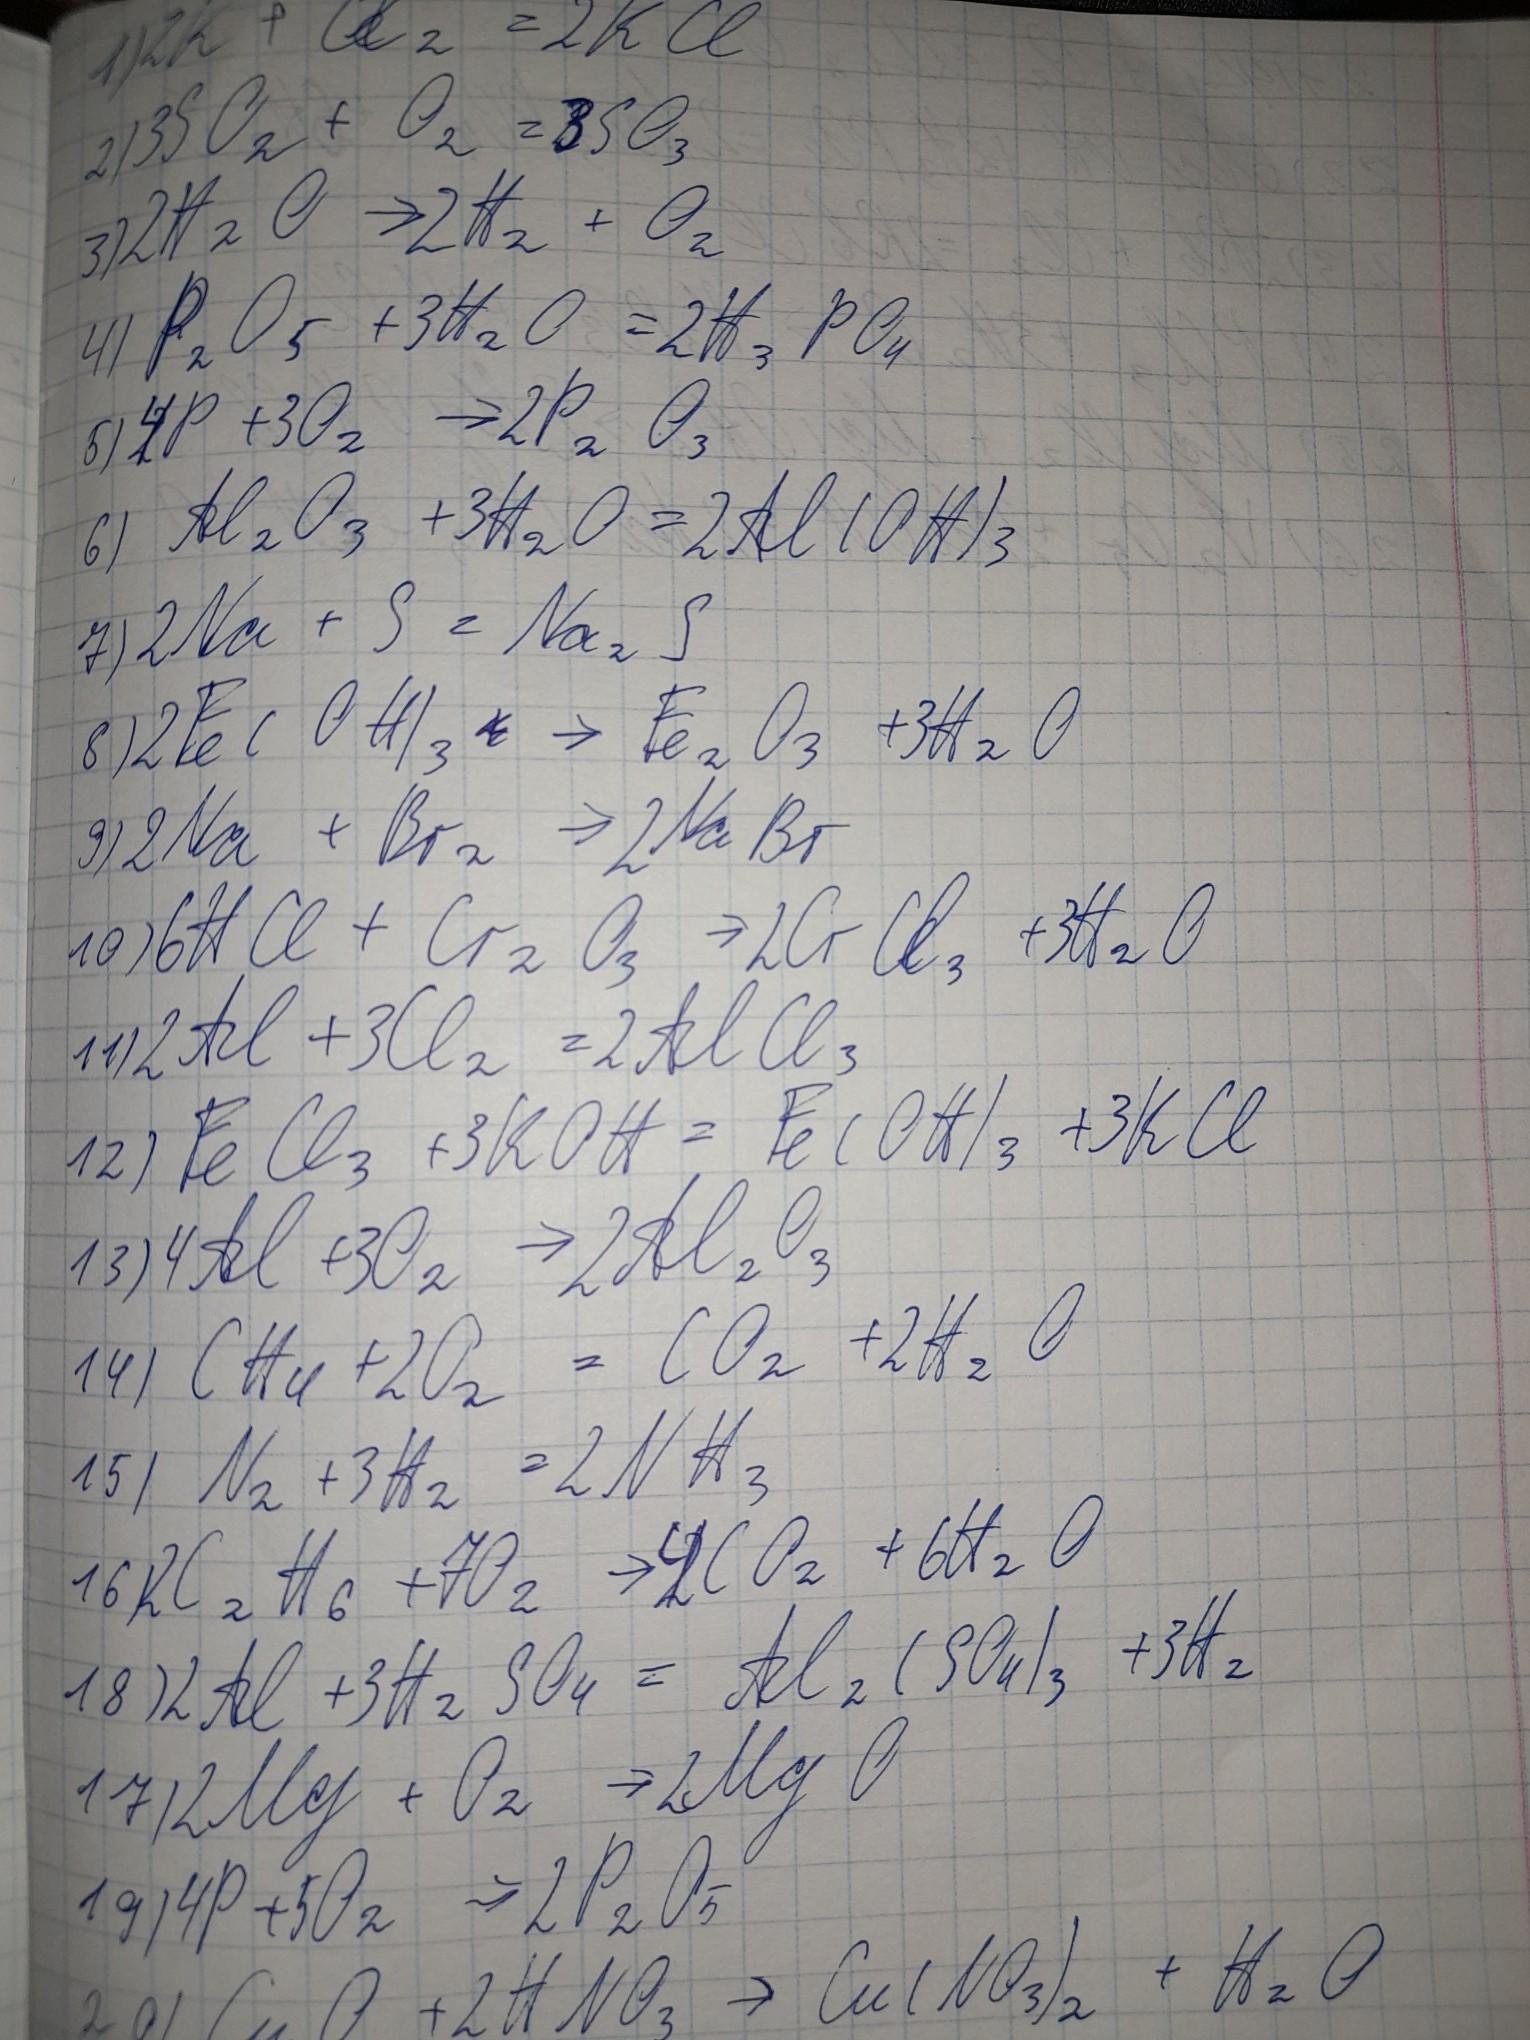 1) 2K + Cl₂ = 2KCl
2) 3SO₂ + O₂ = 3SO₃
3) 2H₂O → 2H₂ + O₂
4) P₂O₅ + 3H₂O = 2H₃PO₄
5) 4P + 3O₂ → 2P₂O₃
6) Al₂O₃ + 3H₂O = 2Al(OH)₃
7) 2Na + S = Na₂S
8) 2Fe(OH)₃ → Fe₂O₃ + 3H₂O
9) 2Na + Br₂ → 2NaBr
10) 6HCl + Cr₂O₃ → 2CrCl₃ + 3H₂O
11) 2Al + 3Cl₂ = 2AlCl₃
12) FeCl₃ + 3KOH = Fe(OH)₃ + 3KCl
13) 4Al + 3O₂ → 2Al₂O₃
14) CH₄ + 2O₂ = CO₂ + 2H₂O
15) N₂ + 3H₂ = 2NH₃
16) 2C₂H₆ + 7O₂ → 4CO₂ + 6H₂O
18) 2Al + 3H₂SO₄ = Al₂(SO₄)₃ + 3H₂
17) 2Mg + O₂ → 2MgO
19) 4P + 5O₂ → 2P₂O₅
20) CuO + 2HNO₃ → Cu(NO₃)₂ + H₂O